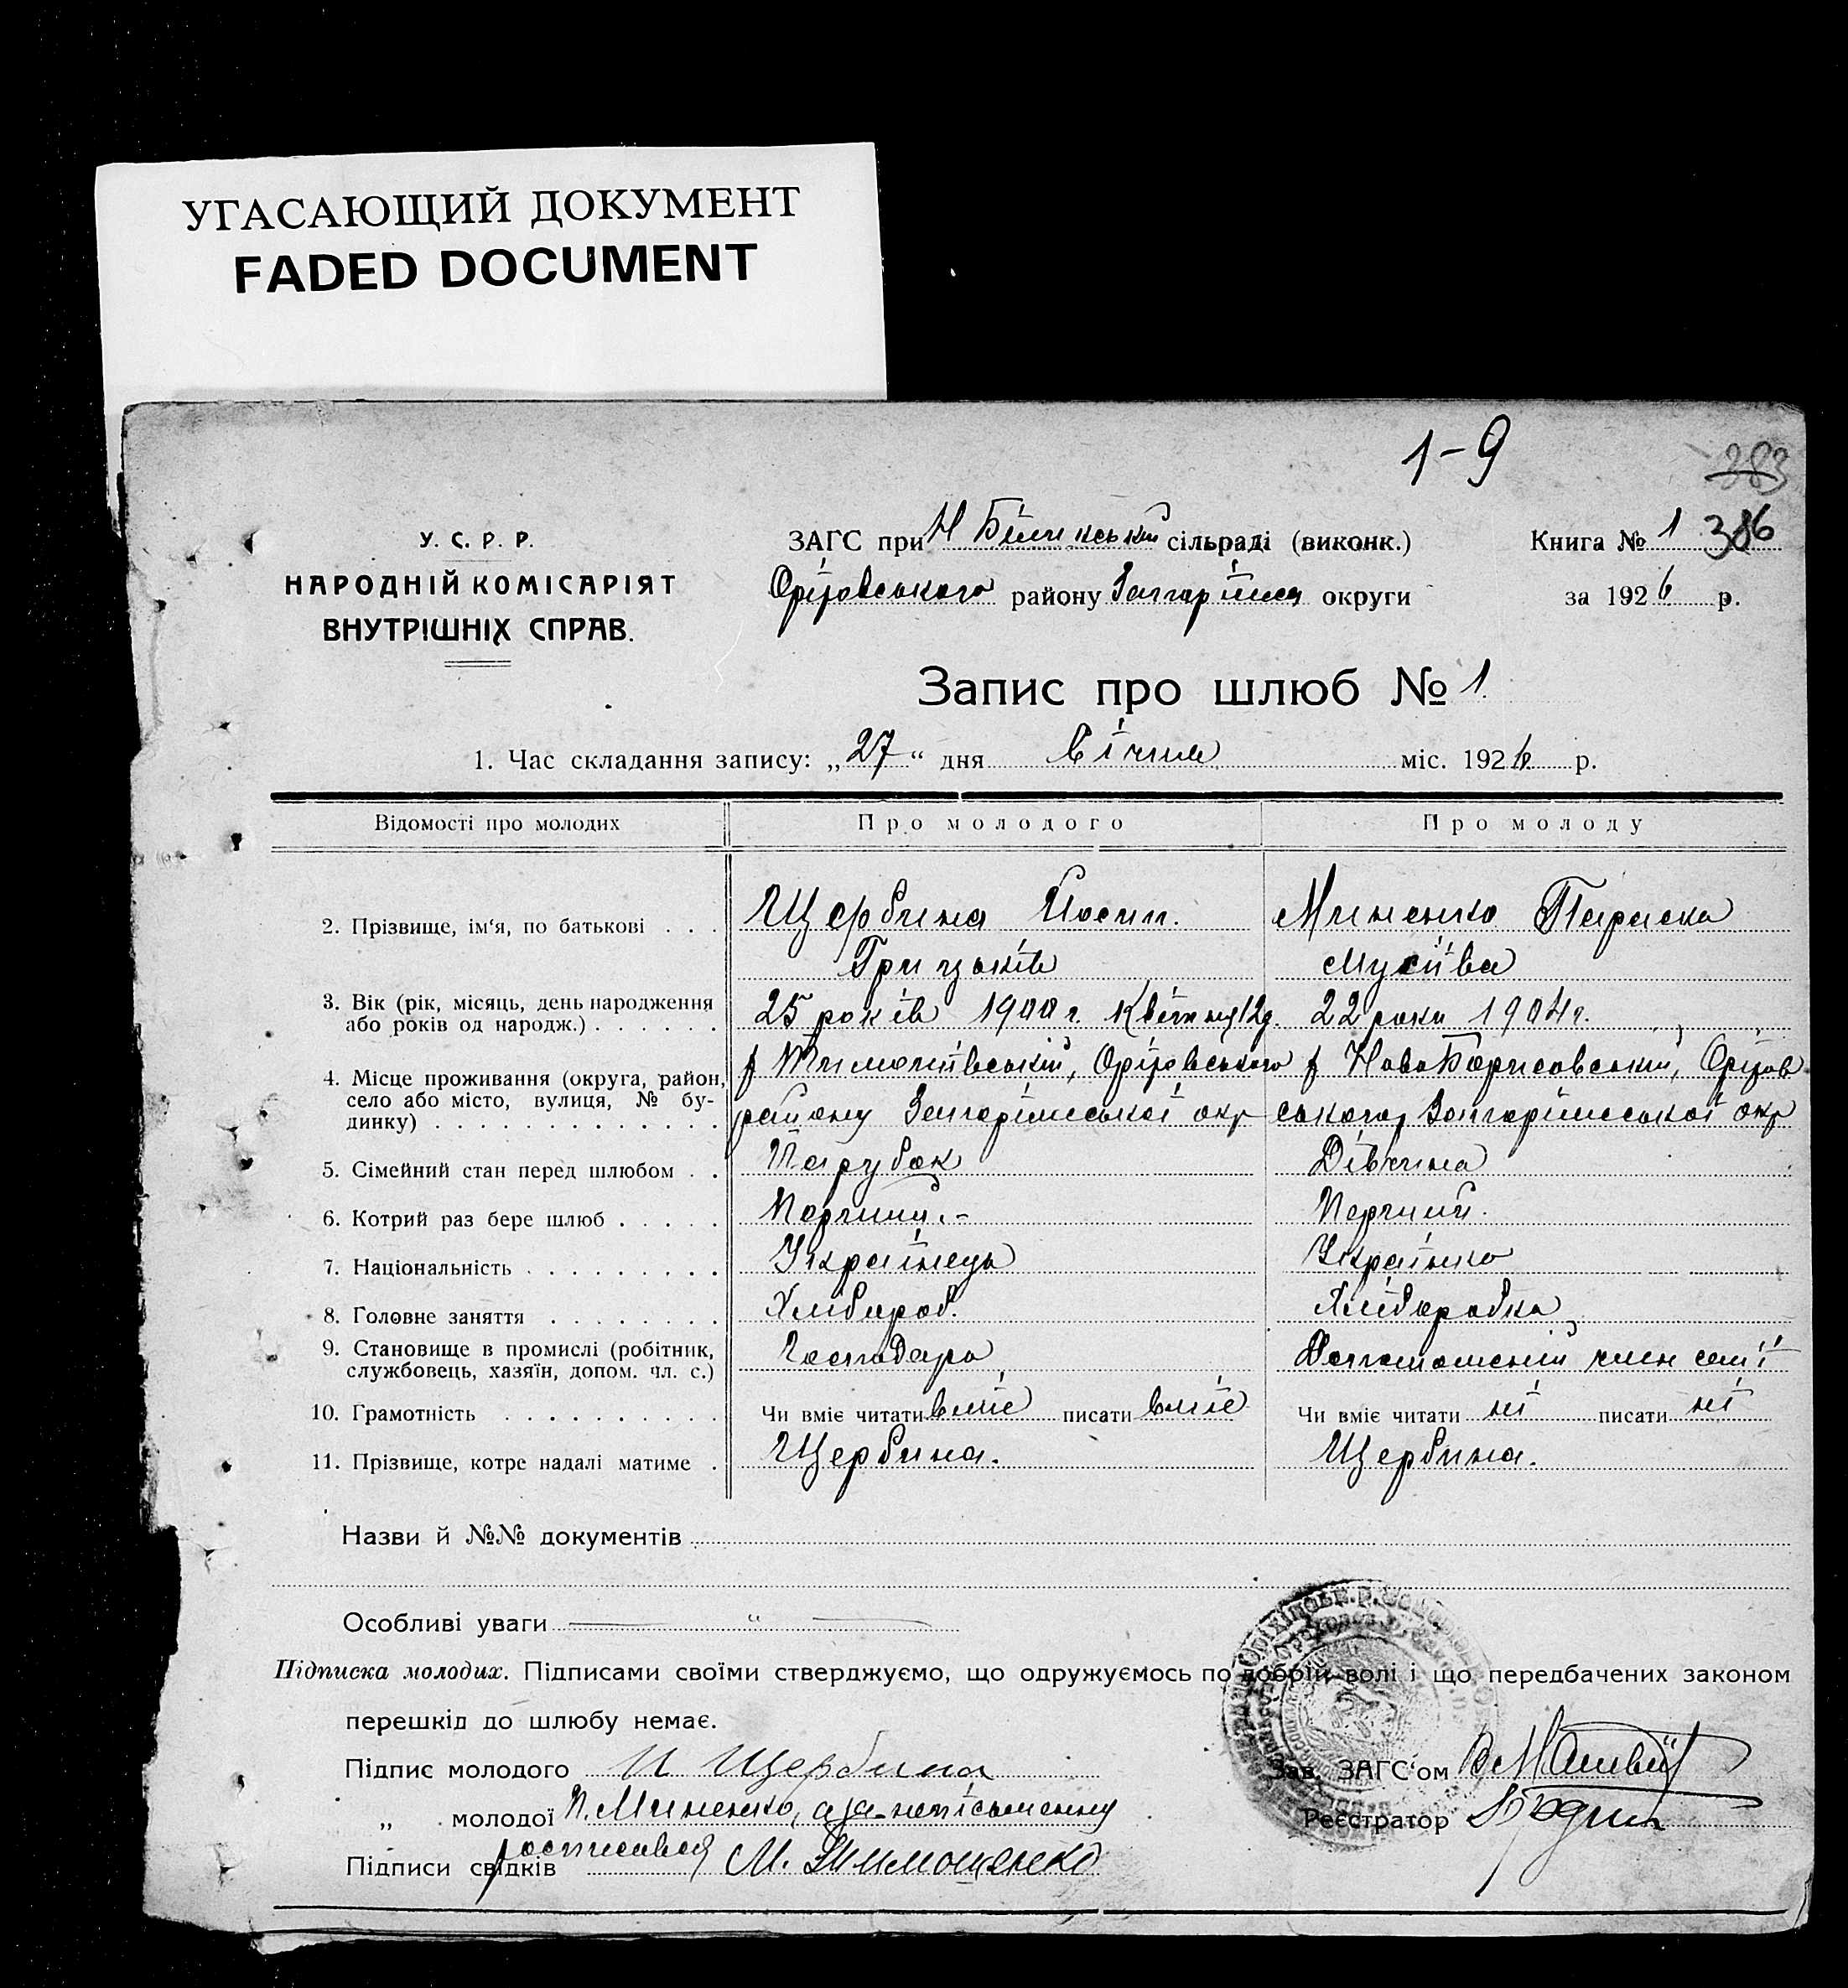 УГАСАЮЩИЙ ДОКУМЕНТ
FADED DOCUMENT
1-9
383
У. С. Р. Р.
НАРОДНІЙ КОМІСАРІЯТ
ВНУТРІШНІХ СПРАВ.
ЗАГС при Н сільраді (виконк.)
Оріховського району Запоріжся округи
Книга № 1 386
за 1926 р.
Запис про шлюб № 1
1. Час складання запису: „27“ дня Січня міс. 1926 р.
Відомості про молодих Про молодого Про молоду
2. Прізвище, ім‘я, по батькові . . . Щербина Йосип. Миненко Параска
Грицьків Мусіїва
3. Вік (рік, місяць, день народження
або років од народж.) . . . . . . 25 років 1900 г. Квітня 12д. 22 роки 1904г.
4. Місце проживання (округа, район,
село або місто, вулиця, № бу-
динку) . . . . . . . . . . . . .
х Тимошівський, Оріховського х Ново Борисовський, Оріхов
району Запоріжської окр ського, Запоріжської окр
5. Сімейний стан перед шлюбом . . Парубок Дівчина
6. Котрий раз бере шлюб . . . . . Перший.- Перший.
7. Національність . . . . . . . . . Українець Українка
8. Головне заняття . . . . . . . . Хлібороб. Хліборобка
9. Становище в промислі (робітник,
службовець, хазяїн, допом. чл. с.) Господарь Допоможений член сем'ї
10. Грамотність . . . . . . . . . . Чи вміє читати вміє писати вміє Чи вміє читати ні писати ні
11. Прізвище, котре надалі матиме . Щербина. Щербина.
Назви й №№ документів
Особливі уваги — “ —
Підписка молодих. Підписами своїми стверджуємо, що одружуємось по добрій волі і що передбачених законом
перешкід до шлюбу немає.
Підпис молодого И Щербина
„ молодої П. Миненко, а за неписьменну
росписався
Підписи свідків М. Тимошенко
Зав. ЗАГС‘ом
Реєстратор